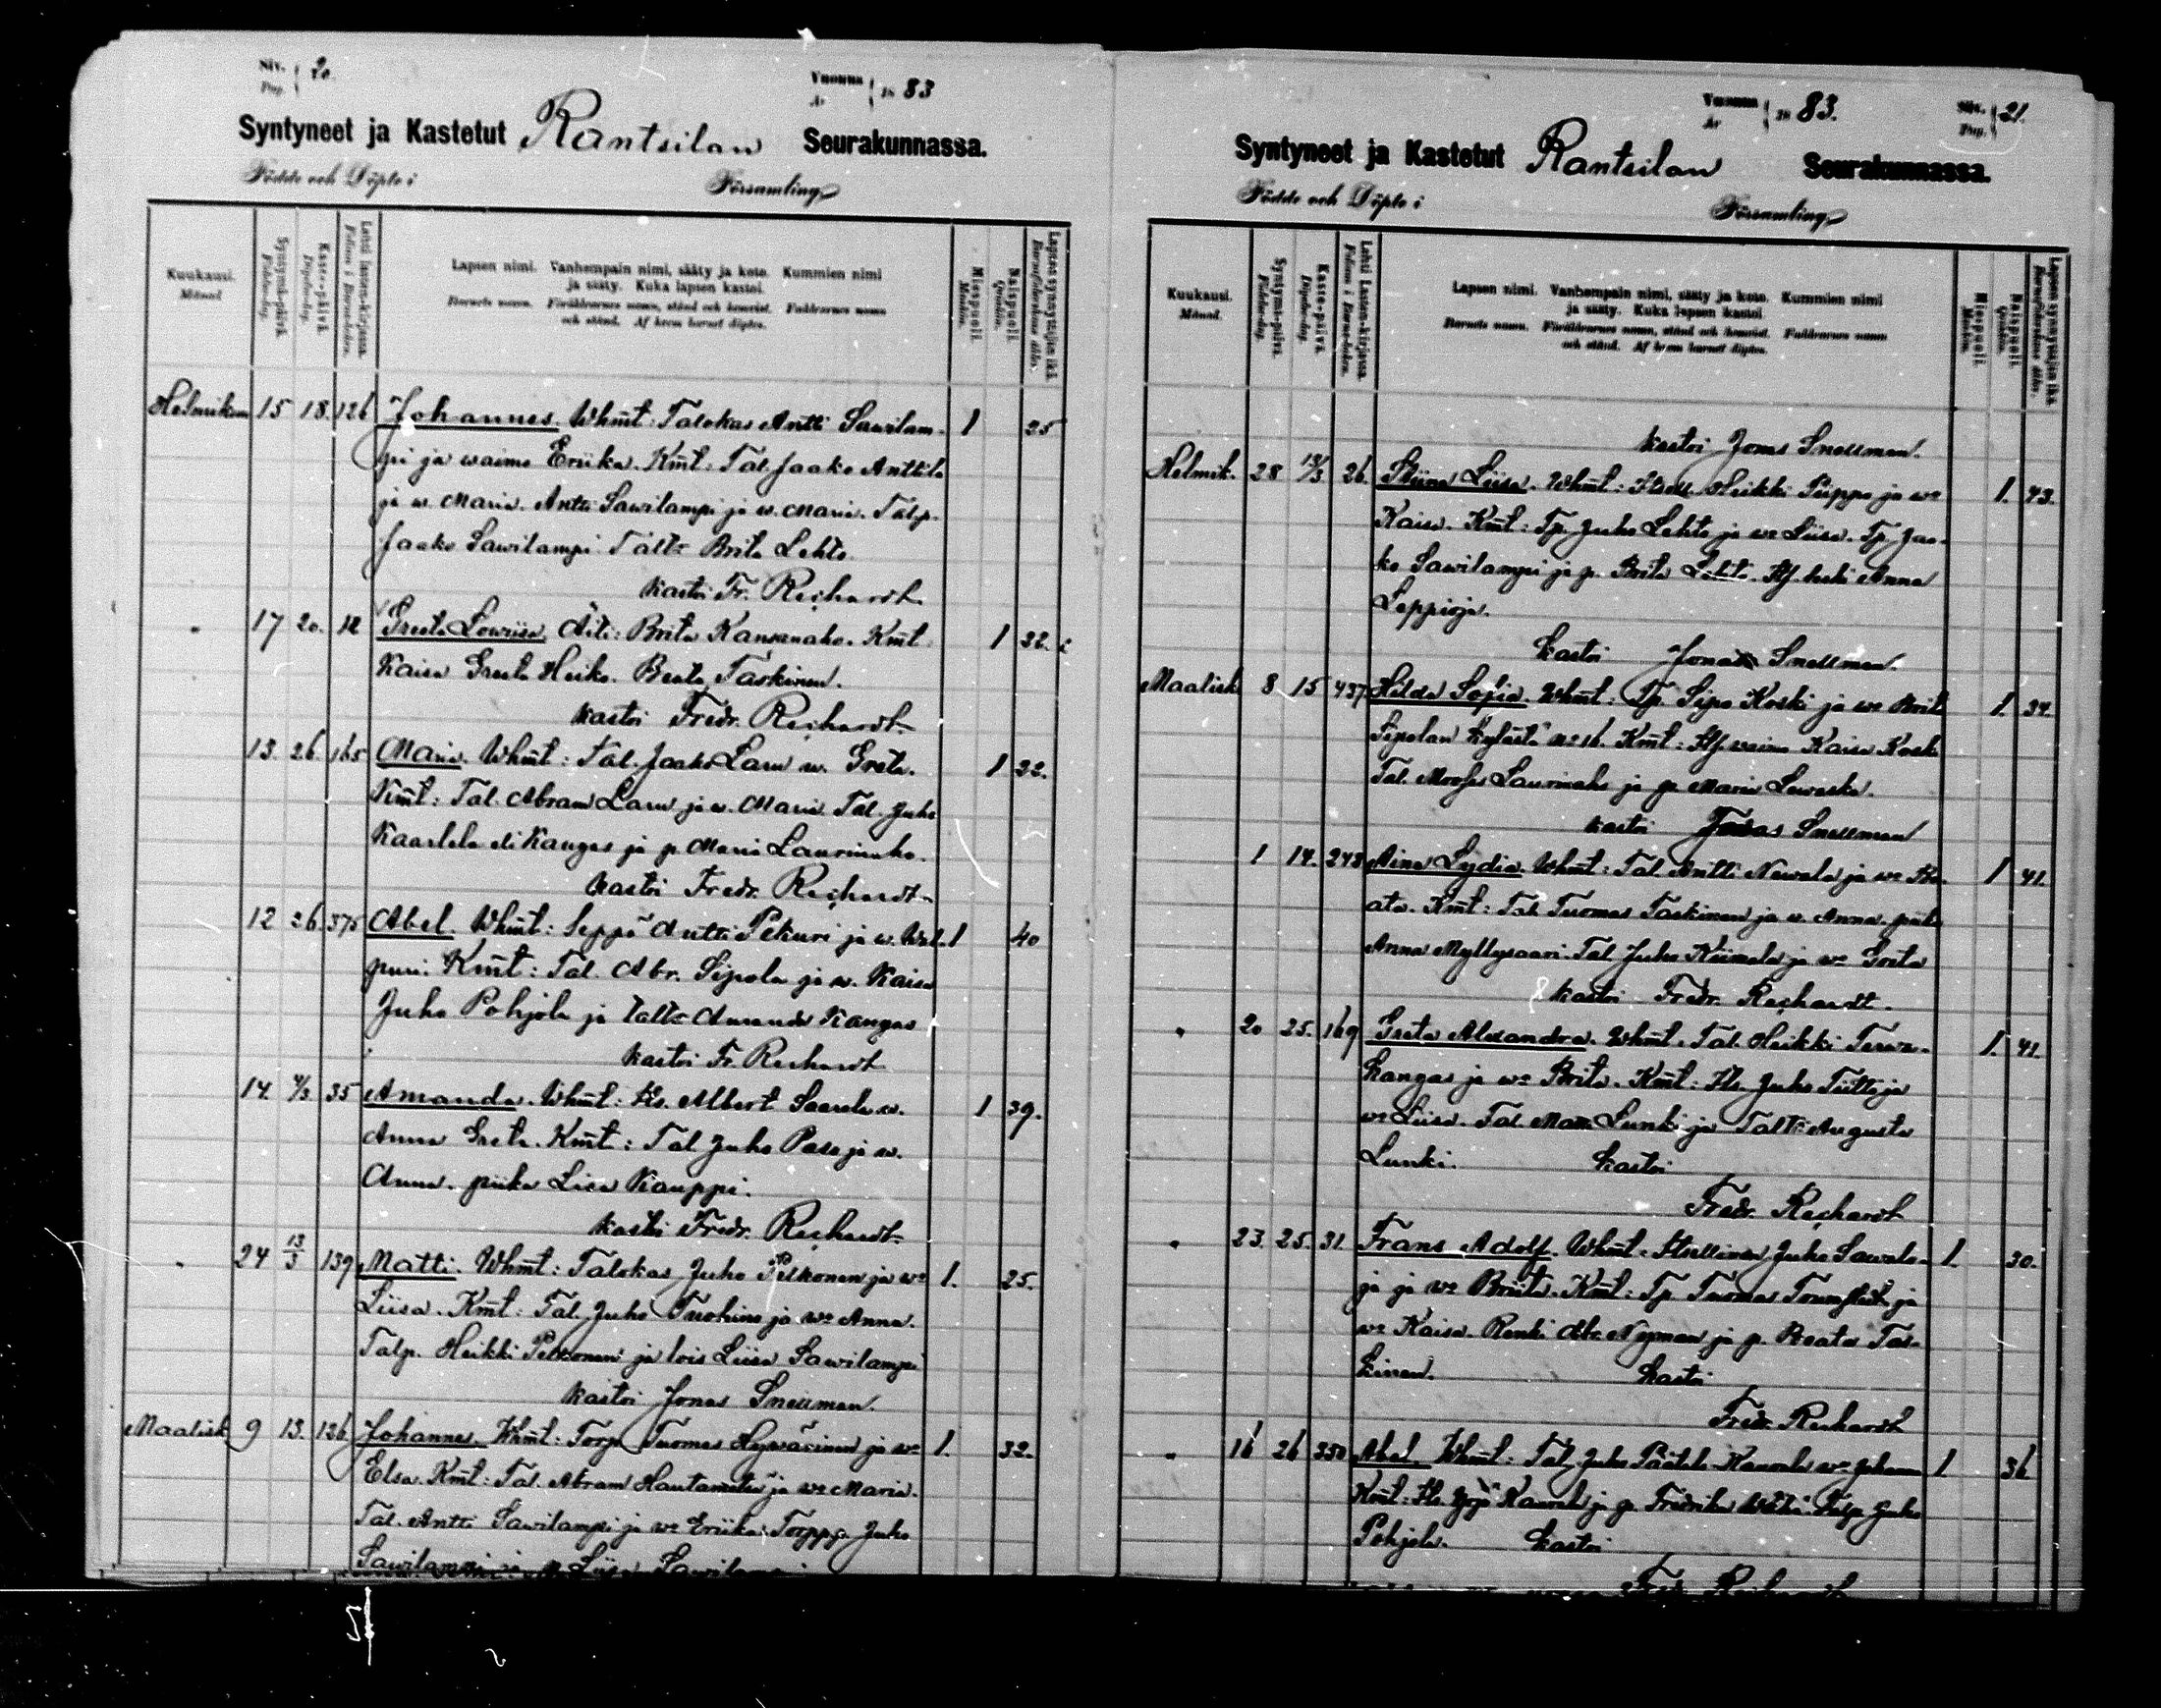 Siv. 20.
Pag.
Vuonna 1883
År
Syntyneet ja Kastetut Rantsilan Seurakunnassa.
Födde och Döpte i Församling
Kuukausi.
Månad
Syntymä-päivä.
Födelse-dag.
Kaste-päivä.
Döpelse-dag.
Lehti Lasten-kirjassa.
Folium i Barna-boken.
Lapsen nimi. Vanhempain nimi, sääty ja koto. Kummien nimi
ja sääty. Kuka lapsen kastoi.
Barnets namn. Föräldrarnes namn, stånd och hemvist. Faddrarnes namn
och stånd. Af hvem barnet döptes.
Miespuoli.
Mankön.
Naispuoli.
Qvinkön.
Lapsen synnyttäjän ikä.
Barnaföderskans ålder.
Helmikuu 15 18. 126 Johannes. Whmt: Talokas Antti Sawilam- 1 25
pi ja waimo Eriika. Kmt: Tal. Jaako Anttila
ja w. Maria. Antti Sawilampi ja w. Maria. Talp.
Jaako Sawilampi Taltr Brita Lehto.
kastoi Fr. Rechardt.
" 17 20. 12 Greeta Lowiisa. Äiti: Brita Kansanaho. Kmt 1 32.
Kaisa Greeta Heiko. Beata Taskinen.
kastoi Fredr. Rechardt.
13. 26. 165 Maria. Whmt: Tal. Jaako Laru w. Greta. 1 32.
Kmt: Tal. Abram Laru ja w. Maria Tal. Juho
Kaarlela eli Kangas ja p. Maria Laurinaho.
kastoi Fredr. Rechardt.
12 26 375 Abel. Whmt: Seppä Antti Pekuri ja w. Wal- 1 40
puri. Kmt: Tal. Abr. Sipola ja w. Kaisa
Juho Pohjola ja taltr Amanda Kangas
kastoi Fr. Rechardt
14. 4/3 35 Amanda. Whmt: Its. Albert Saarela w. 1 39.
Anna Greta. Kmt: Tal Juho Pasa ja w.
Anna. piika Lisa Kauppi.
kastoi Fredr. Rechardt.
" 24 13/3 139 Matti. Whmt: Talokas Juho Pelkonen ja wo 1. 25.
Liisa. Kmt: Tal. Juho Tuohino ja wo Anna.
Talp. Heikki Pelkonen ja lois Liisa Sawilampi
kastoi Jonas Snellman.
Maalisk 9 13. 126. Johannes. Whmt: Torp. Tuomas Hywärinen ja wo 1. 32.
Elsa. Kmt: Tal. Abram Hautamäki ja wo Maria.
Tal. Antti Sawilampi ja wo Eriika. Torppp. Juho
Sawilampi ja p. Liisa Sawilampi
Vuonna 1883.
År
Siv. 21.
Pag.
Syntyneet ja Kastetut Rantsilan Seurakunnassa.
Födde och Döpte i Församling
Kuukausi.
Månad.
Syntymä-päivä.
Födelse-dag.
Kaste-päivä.
Döpelse-dag.
Lehti Lasten-kirjassa.
Folium i Barna-boken.
Lapsen nimi. Vanhempain nimi, sääty ja koto. Kummien nimi
ja sääty. Kuka lapsen kastoi.
Barnets namn. Föräldrarnes namn, stånd och hemvist. Faddrarnes namn
och stånd. Af hvem barnet döptes.
Miespuoli.
Mankön.
Naispuoli.
Qvinkön.
Lapsen synnyttäjän ikä.
Barnaföderskans ålder.
kastoi Jonas Snellman.
Helmik. 28 26. Stiina Liisa. Whmt: Heikki Piippo ja wo 1. 43.
Kaisa. Kmt: Tp. Juho Lehto ja wo Liisa. Tp. Jaa-
ko Sawilampi ja p. Brita Lehto. leski Anna
Leppioja.
kastoi Jonas Snellman.
Maalisk 8 15 437 Hilda Sofia. Whmt: Tp. Sipo Koski ja wo Brita 1. 34.
Sipolan kylästä No 16. Kmt: waimo Kaisa Koski
Tal. Mooses Laurinaho ja p. Maria
kastoi Jonas Snellman
1 14. 243 Aina Lydia. Whmt: Tal. Antti Newala ja wo Be- 1 41.
ata. Kmt: Tal Tuomas Taskinen ja w. Anna. piik
Anna Myllysaari. Tal Juho Niimala ja wo Greta
kastoi Fredr. Rechardt.
" 20 25. 169 Greta Alexandra. Whmt. Tal. Heikki Terwa- 1. 41.
kangas ja wo Brita. Kmt: Its. Juho Tiitt ja
wo Liisa. Tal. Matts Lunki ja Taltr Augusta
Lunki. kastoi
Fredr. Rechardt
" 23. 25. 31. Frans Adolf. Whmt: Itsellinen Juho Sawalo- 1. 30.
ja ja wo Briita. Kmt: Tp Tuomas ja
wo Kaisa. Renki Abr. Nyman ja p. Beata Tas-
kinen. kastoi
Fredr. Rechardt
" 16 26 350 Abel. Whmt: Tal. Juho wo Johanna 1 36
Kmt: Its. Yrjö ja p. Fredrika Talp. Juho
Pohjola. kastoi
Fredr. Rechardt.